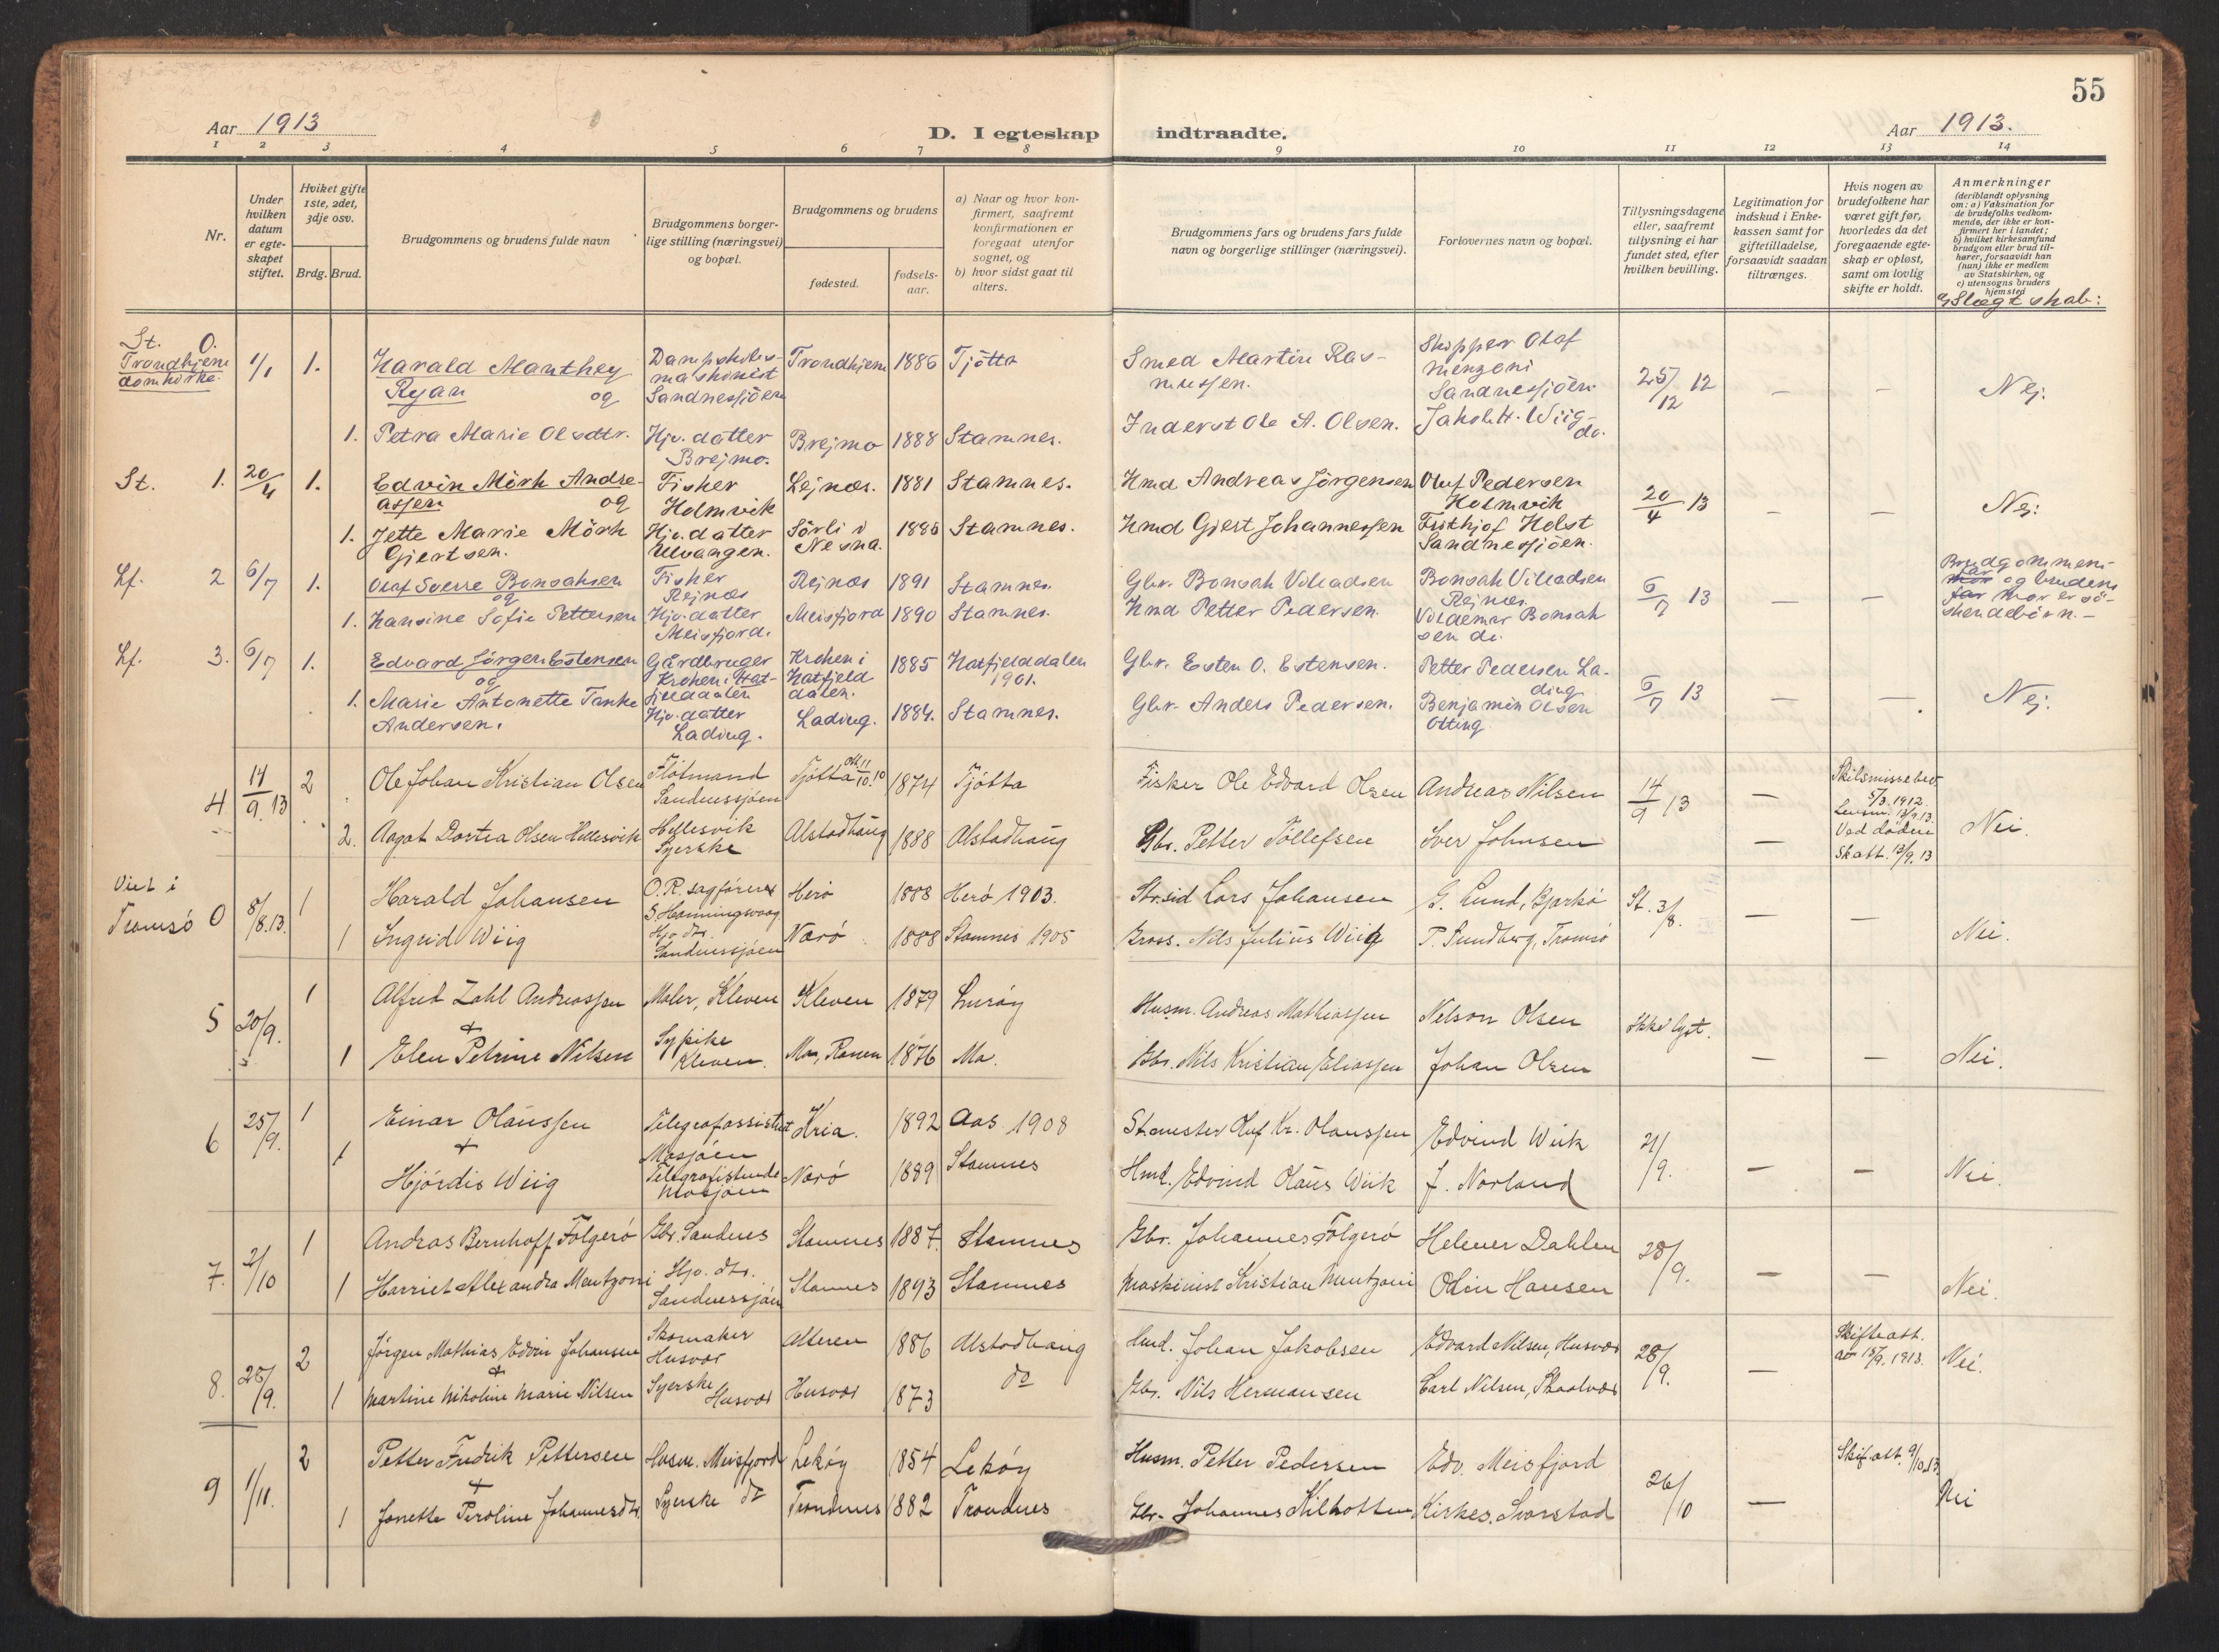 55
Aar 1913
D. I egteskap indtraadte.
Aar 1913.
1 2 3 4 5 6 7 8 9 10 11 12 13 14
Nr.
Under hvilken datum er egteskapet stiftet.
Hviket gifte 1ste, 2det, 3dje osv.
Brdg. Brud.
Brudgommens og brudens fulde navn
Brudgommens borgerlige stilling (næringsvei) og bopæl.
Brudgommens og brudens
fødested.
fødselsaar.
a) Naar og hvor konfirmert, saafremt konfirmationen er foregaat utenfor sognet, og
b) hvor sidst gaat til alters.
Brudgommens fars og brudens fars fulde navn og borgerlige stillinger (næringsvei).
Forlovernes navn og bopæl.
Tillysningsdagene eller, saafremt tillysning ei har fundet sted, efter hvilken bevilling.
Legitimation for indskud i Enkekassen samt for giftetilladelse, forsaavidt saadan tiltrænges.
Hvis nogen av brudefolkene har været gift før, hvorledes da det foregaaende egteskap er opløst, samt om lovlig skifte er holdt.
Anmerkninger
(deriblandt oplysning om: a) Vaksination for de brudefolks vedkommende, der ikke er konfirmert her i landet;
b) hvilket kirkesamfund brudgom eller brud tilhører, forsaavidt han (hun) ikke er medlem av Statskirken, og
c) utensogns bruders hjemsted
Slægtskab:
St. O. Trondhjems domkirke 1/1 1. Harald Manthey Ryan og Dampskibsmaskinist Sandnessjöen Trondhjem 1886 Tjötta Smed Martin Rasmussen. Skipper Olaf Menzoni Sandnessjöen. 25/12 12 — — Nej.
1. Petra Marie Olsdtr. Hjv. datter Brejmo. Brejmo 1888 Stamnes. Inderst Ole A. Olsen. Jakob H. Wiig do.
St. 1. 20/4 1. Edvin Mörk Andreassen og Fisker Holmvik Lejnes. 1881 Stamnes. Hmd Andreas Jörgensen Oluf Pedersen Holmvik 20/4 13 — — Nej.
1. Jette Marie Mörk Gjertsen. Hjv. datter Ulvangen. Sörli i Nesna. 1885 Stamnes. Hmd Gjert Johannessen Frithjof Holst Sandnessjöen.
Lf. 2 6/7 1. Olaf Sverre Bonsaksen og Fisker Rejnes Rejnes 1891 Stamnes. Gbr. Bonsak Vileadsen Bonsak Vileadsen Rejnes. 6/7 13 — — Brudgommens far og brudens mor er söskendebörn. —
1. Hansine Sofie Pettersen Hjv. datter Meisfjord. Meisfjord 1890 Stamnes. Hmd Petter Pedersen. Voldemar Bonsaksen do.
Lf. 3. 6/7 1. Edvard Jörgen Estensen og Gårdbruger Kroken i Hatfjelddalen Kroken i Hatfjelddalen. 1885 Hatfjelddalen 1901. Gbr. Esten O. Estensen. Petter Pedersen Lading 6/7 13 — — Nej.
1. Marie Antonette Tanke Andersen. Hjv. datter Lading. Lading. 1884. Stamnes. Gbr. Anders Pedersen. Benjamin Olsen Otting
4 14/9 13 2 Ole Johan Kristian Olsen Flötmand Sandnessjøen Tjötta 1874 Tjötta Fisker Ole Edvard Olsen Andreas Nilsen 14/9 13 — Skilsmissebev. 5/3 1912. 13/9 13.
2. Aagot Dortea Olsen Hellesvik Hellesvik Syerske Alstadhaug 1888 Alstadhaug Gbr. Petter Tollefsen Iver Johnsen — Ved döden Skatt. 13/9. 13 Nei.
Viet i Tromsö 0 8/8.13. 1 Harald Johansen O. R. sagförer S. Honningsvaag Herö 1888 Herö 1903. Lars Johansen G. Lund, Bjarkö St. 3/8. — —
1 Ingrid Wiig Hjv. dtr. Sandnessjöen Nærö 1888 Stamnes 1905 Nils Julius Wiig P. Sundberg, Tromsö Nei.
5 20/9. 1 Alfred Zahl Andreassen + Maler, Kleven Kleven 1879 Luröy Husm. Andreas Mathiassen Nelson Olsen Ikke lyst.
1 Elen Petrine Nilsen Sypike Kleven. Mo, Ranen 1876 Mo. Gbr. Nils Kristian Eliassen Johan Olsen — — Nei.
6 25/9. 1 Einar Olaussen + Telegrafassistent Mosjöen Kria. 1892 Aas 1908 Olaf Kr. Olaussen Edvind Wiik 21/9.
1 Hjördis Wiig Mosjöen Nærö 1889 Stamnes Hmd. Edvind Olaus Wiik J. Norland — — Nei.
7. 2/10 1 Andras Bernhoff Folgerö Gbr. Sandnes Stamnes 1887. Stamnes Gbr. Johannes Folgerö Helmer Dahlen 28/9.
1 Harriet Alexandra Mentzoni Hjv. dtr. Sandnessjöen Stamnes 1893 Stamnes Maskinist Kristian Mentzoni Odin Hansen — — Nei.
8. 28/9. 2 Jörgen Mathias Edvin Johansen + Skomaker Husvær Alteren 1886 Alstadhaug Hmd. Johan Jakobsen Edvard Nilsen, Husvær 28/9. — Skifteatt. av 15/9. 1913. Nei.
1 Martine Nikoline Marie Nilsen Syerske Husvær Husvær 1873 do Gbr. Nils Hermansen Carl Nilsen, Skaalvær
9 1/11. 2 Petter Fredrik Pettersen + Husm. Meisfjord Leköy 1854 Leköy Husm. Petter Pedersen Edv. Meisfjord 26/10 — Skif. att. 9/10.13.
1 Jonette Peroline Johannesdtr. Syerske do Trondnes 1882 Trondnes Gbr. Johannes Kilbotten Kirkes. Svarstad Nei